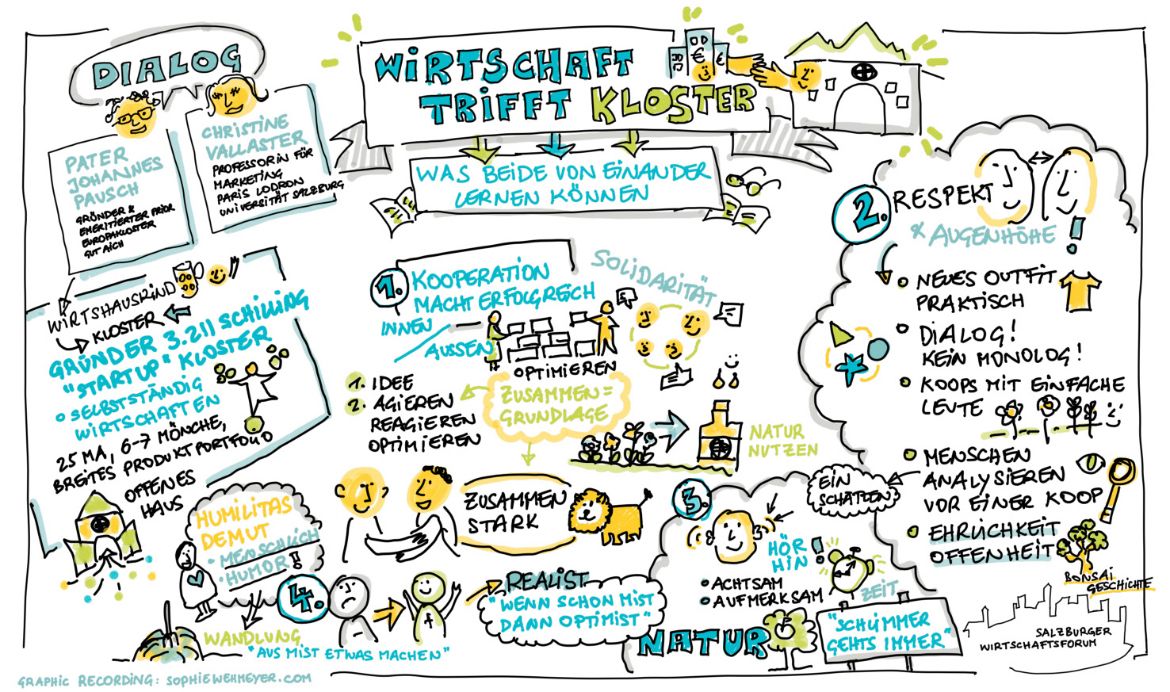 DIALOG
PATER
JOHANNES
PAUSCH
GRÜNDER &
EMERITIERTER PRIOR
EUROPAKLOSTER
GUT AICH
CHRISTINE
VALLASTER
PROFESSORIN FÜR
MARKETING
PARIS LODRON
UNIVERSITÄT SALZBURG
WIRTSCHAFT
TRIFFT KLOSTER
WAS BEIDE VON EINANDER
LERNEN KÖNNEN
WIRTSHAUSKIND
KLOSTER
GRÜNDER 3.211 SCHILLING
"STARTUP" KLOSTER
SELBSTSTÄNDIG
WIRTSCHAFTEN
25 MA, 6-7 MÖNCHE,
BREITES PRODUKTPORTFOLIO
OFFENES
HAUS
1. KOOPERATION
MACHT ERFOLGREICH
INNEN
AUSSEN
SOLIDARITÄT
OPTIMIEREN
1. IDEE
2. AGIEREN
REAGIEREN
OPTIMIEREN
ZUSAMMEN =
GRUNDLAGE
NATUR
NUTZEN
ZUSAMMEN
STARK
2. RESPEKT
AUGENHÖHE
NEUES OUTFIT
PRAKTISCH
DIALOG!
KEIN MONOLOG!
KOOPS MIT EINFACHE
LEUTE
MENSCHEN
ANALYSIEREN
VOR EINER KOOP
EIN
SCHÄTZEN
EHRLICHKEIT
OFFENHEIT
BONSAI
GESCHICHTE
3.
HÖR
HIN!
ACHTSAM
AUFMERKSAM
ZEIT
NATUR
"SCHLIMMER
GEHTS IMMER"
HUMILITAS
DEMUT
MENSCHLICH
HUMOR!!
4.
WANDLUNG
"AUS MIST ETWAS MACHEN"
REALIST
"WENN SCHON MIST
DANN OPTIMIST"
SALZBURGER
WIRTSCHAFTSFORUM
GRAPHIC RECORDING: SOPHIEWEHMEYER.COM